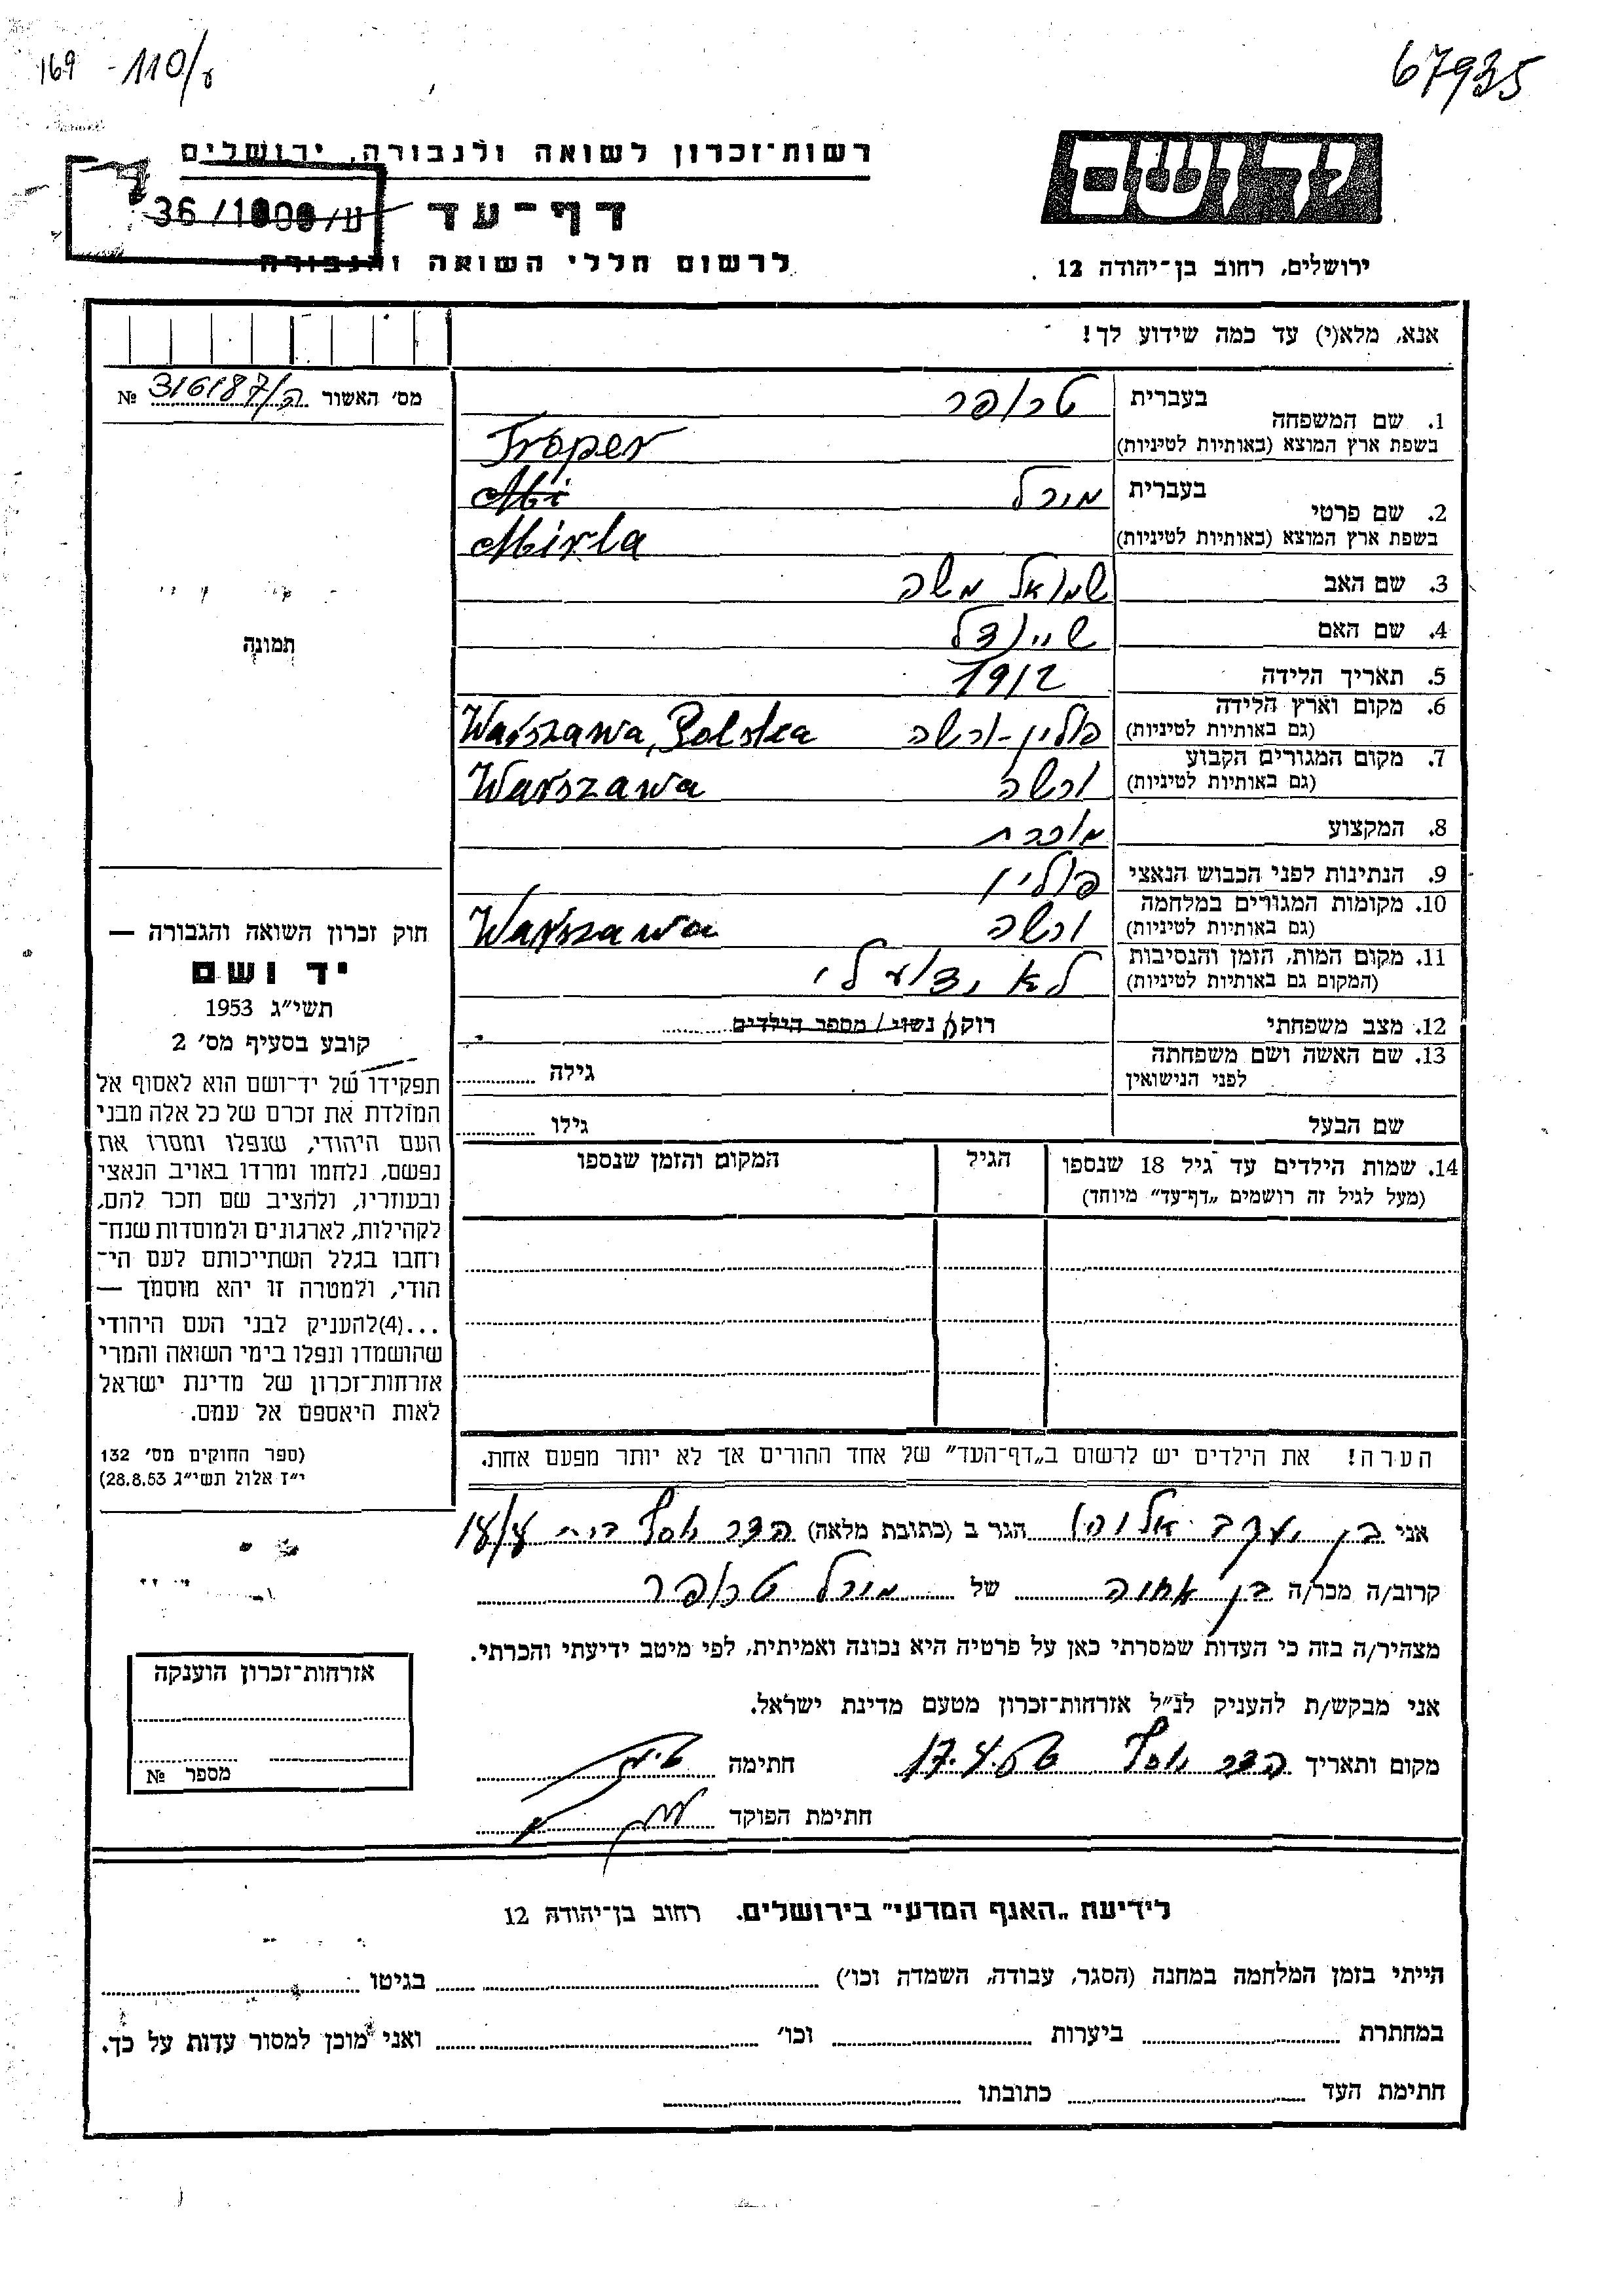 169 -110/ת
67935
רשות-זכרון לשואה ולגבורה, ירושלים
יד ושם
36/1000/ע
דף-עד
לרשום חללי השואה והגבורה
ירושלים, רחוב בן-יהודה 12
אנא, מלא(י) עד כמה שידוע לך!
מס׳ האשור 316187/ה №
1. שם המשפחה בעברית טרופר
בשפת ארץ המוצא (באותיות לטיניות) Troper
2. שם פרטי בעברית מירל
בשפת ארץ המוצא (באותיות לטיניות) Mirla
3. שם האב שמואל משה
4. שם האם שיינדל
5. תאריך הלידה 1912
6. מקום וארץ הלידה (גם באותיות לטיניות) פולין-ורשה Warszawa, Polska
7. מקום המגורים הקבוע (גם באותיות לטיניות) ורשה Warszawa
8. המקצוע מוכרת
9. הנתינות לפני הכבוש הנאצי פולין
10. מקומות המגורים במלחמה (גם באותיות לטיניות) ורשה Warszawa
11. מקום המות, הזמן והנסיבות (המקום גם באותיות לטיניות) לא ידוע לי
12. מצב משפחתי רוק/ה נשוי / מספר הילדים
13. שם האשה ושם משפחתה לפני הנישואין גילה
שם הבעל גילו
14. שמות הילדים עד גיל 18 שנספו הגיל המקום והזמן שנספו
(מעל לגיל זה רושמים „דף-עד” מיוחד)
הערה! את הילדים יש לרשום ב„דף-העד” של אחד ההורים אך לא יותר מפעם אחת.
תמונה
חוק זכרון השואה והגבורה —
יד ושם
תשי״ג 1953
קובע בסעיף מס׳ 2
תפקידו של יד-ושם הוא לאסוף אל
המולדת את זכרם של כל אלה מבני
העם היהודי, שנפלו ומסרו את
נפשם, נלחמו ומרדו באויב הנאצי
ובעוזריו, ולהציב שם וזכר להם,
לקהילות, לארגונים ולמוסדות שנח-
רחבו בגלל השתייכותם לעם הי-
הודי, ולמטרה זו יהא מוסמך —
...(4)להעניק לבני העם היהודי
שהושמדו ונפלו בימי השואה והמרי
אזרחות-זכרון של מדינת ישראל
לאות היאספם אל עמם.
(ספר החוקים מס׳ 132
י״ז אלול תשי״ג 28.8.53)
אני בן יעקב הגר ב (כתובת מלאה) הדר יוסף
קרוב/ה מכר/ה בן אחיה של מירל טרופר
מצהיר/ה בזה כי העדות שמסרתי כאן על פרטיה היא נכונה ואמיתית, לפי מיטב ידיעתי והכרתי.
אני מבקש/ת להעניק לנ״ל אזרחות-זכרון מטעם מדינת ישראל.
מקום ותאריך הדר יוסף 17.4.56 חתימה
חתימת הפוקד
אזרחות-זכרון הוענקה
מספר №
לידיעת „האגף המדעי” בירושלים. רחוב בן-יהודה 12
הייתי בזמן המלחמה במחנה (הסגר, עבודה, השמדה וכו׳) בגיטו
במחתרת ביערות וכו׳ ואני מוכן למסור עדות על כך.
חתימת העד כתובתו